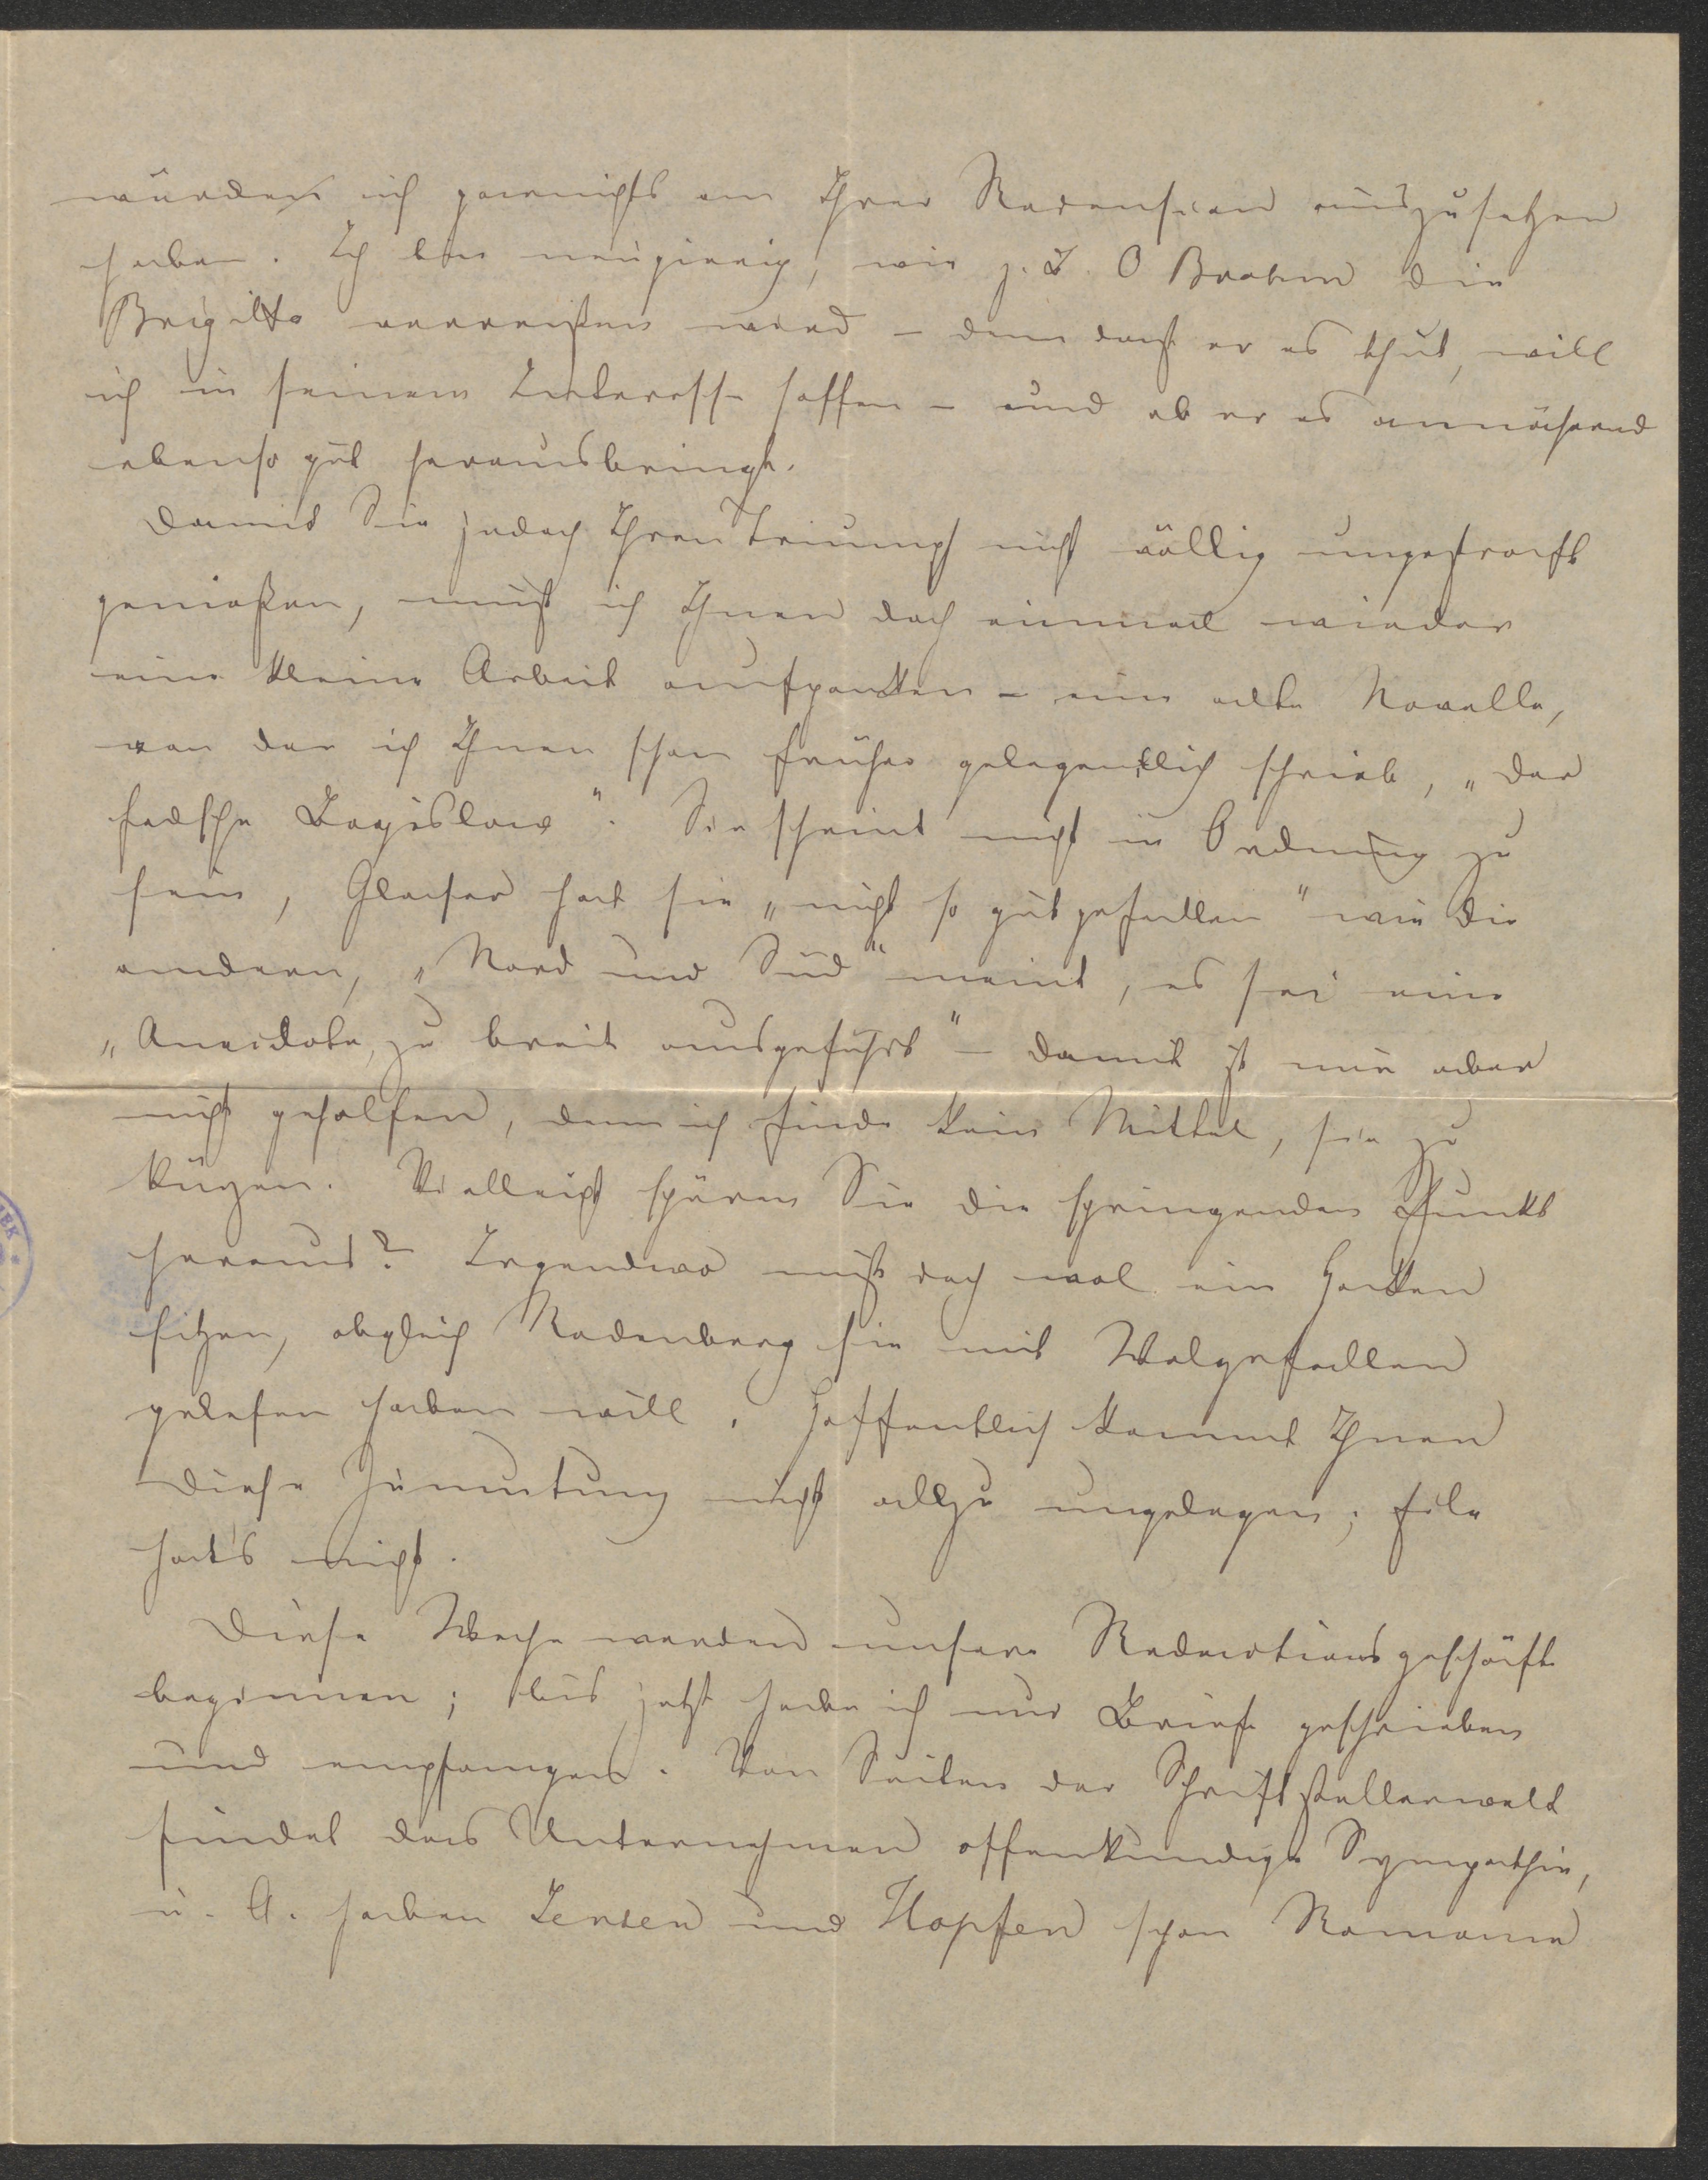 würden ich garnichts an Ihrer Recension auszusetzen
haben. Ich bin neugierig, wie z. B. O Brahm die
Brigitta verreißen wird – denn daß er es thut, will
ich in seinem Interesse hoffen – und ob er es annähernd
ebenso gut herausbringt.
Damit Sie jedoch Ihren Triumph nicht völlig ungestraft
genießen, muß ich Ihnen doch einmal wieder
eine kleine Arbeit aufpacken – eine alte Novelle,
von der ich Ihnen schon früher gelegentlich schrieb, „der
falsche Bogislaw". Sie scheint nicht in Ordnung zu
sein, Glaser hat sie „nicht so gut gefallen" wie die
andern, „Nord und Süd" meint, es sei eine
„Anecdote, zu breit ausgeführt" – damit ist mir aber
nicht geholfen, denn ich finde kein Mittel, sie zu
kürzen. Vielleicht spüren Sie die springenden Punkte
heraus? Irgendwo muß doch wol ein Hacken
sitzen, obgleich Rodenberg sie mit Wolgefallen
gelesen haben will. Hoffentlich kommt Ihnen
diese Zumutung nicht allzu ungelegen; Eile
hat's nicht.
Diese Woche werden unsere Redactionsgeschäfte
beginnen; bis jetzt habe ich nur Briefe geschrieben
und empfangen. Von Seiten der Schriftstellerwelt
findet das Unternehmen offenkundige Sympathie,
u. A. haben Jensen und Hopfen schon Romane